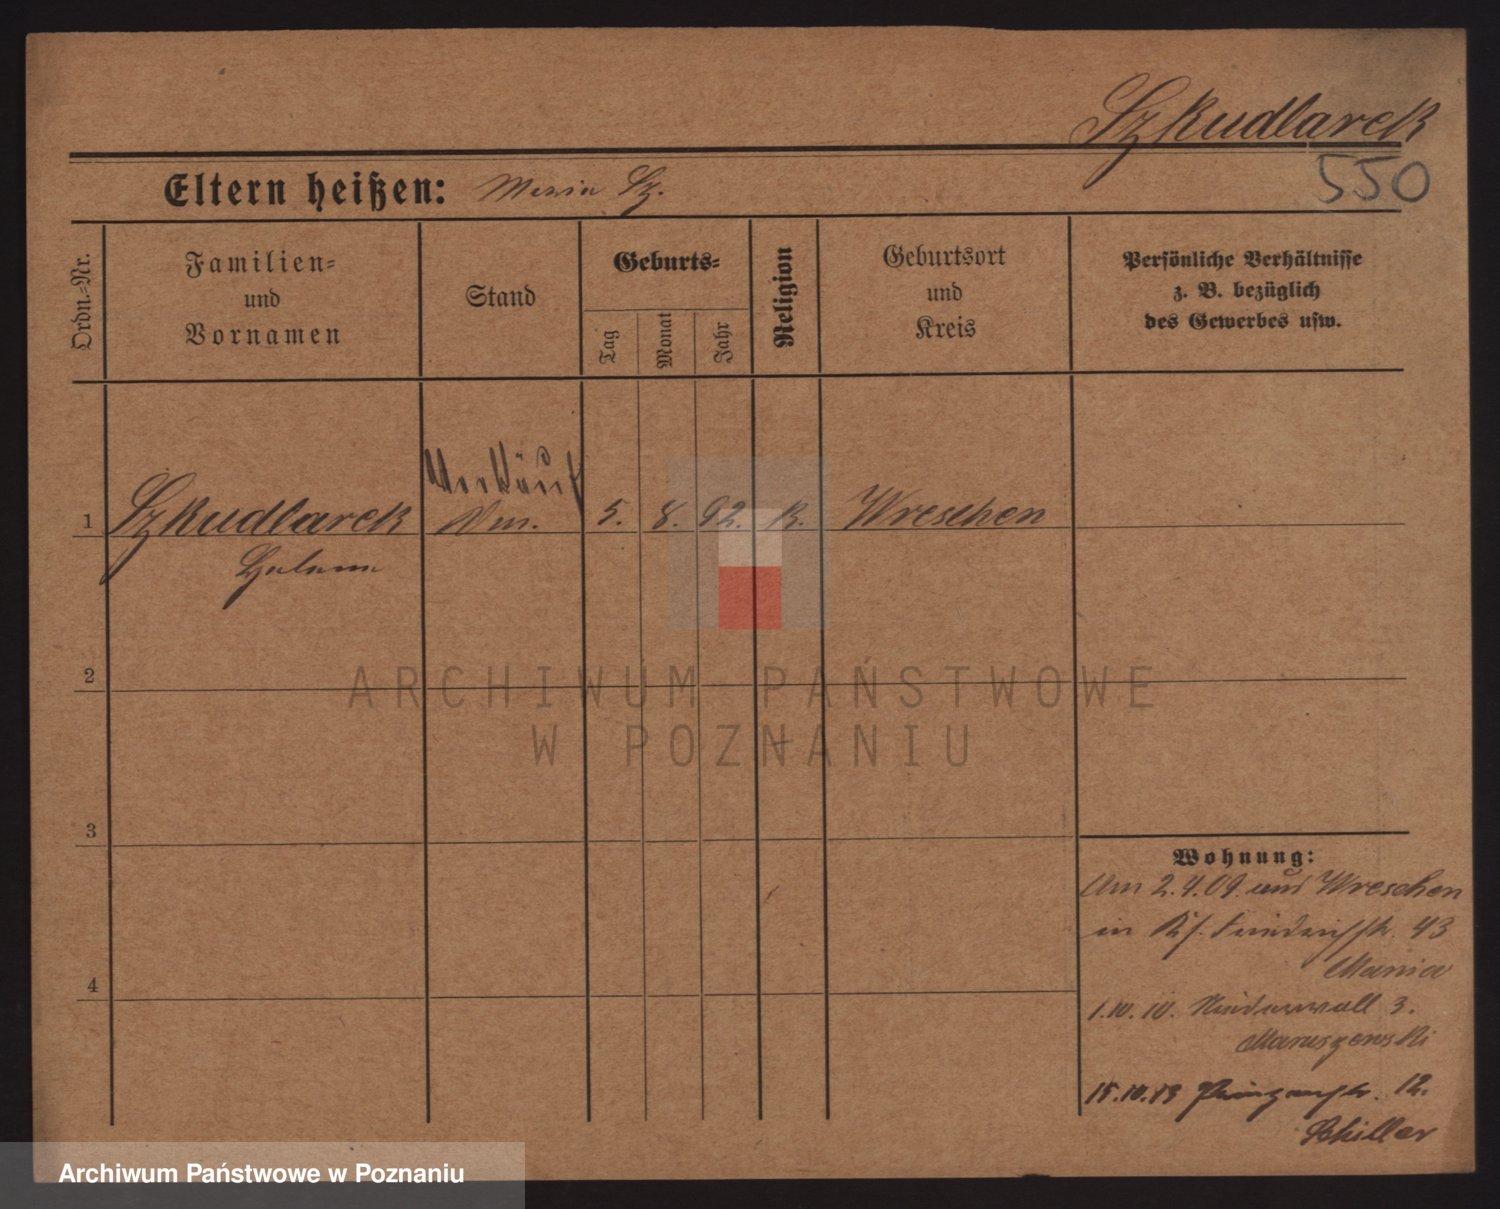 Szkudlarek
550
Eltern heißen: Maria Sz.
Ordn.-Nr.
Familien-
und
Vornamen
Stand
Geburts-
Tag
Monat
Jahr
Religion
Geburtsort
und
Kreis
Persönliche Verhältnisse
z. B. bezüglich
des Gewerbes usw.
Verkäuf
1 Szkudlarek 5. 8. 92. K. Wreschen
Helene
2
ARCHIWUM PAŃSTWOWE
W POZNANIU
3
4
Wohnung:
Am 2.4.09. aus Wreschen
in Friedrichstr. 43
Mania
1.10.10. Niederwall 3.
Maruszewski
15.10.13 Prinzenstr. 12.
Schiller
Archiwum Państwowe w Poznaniu